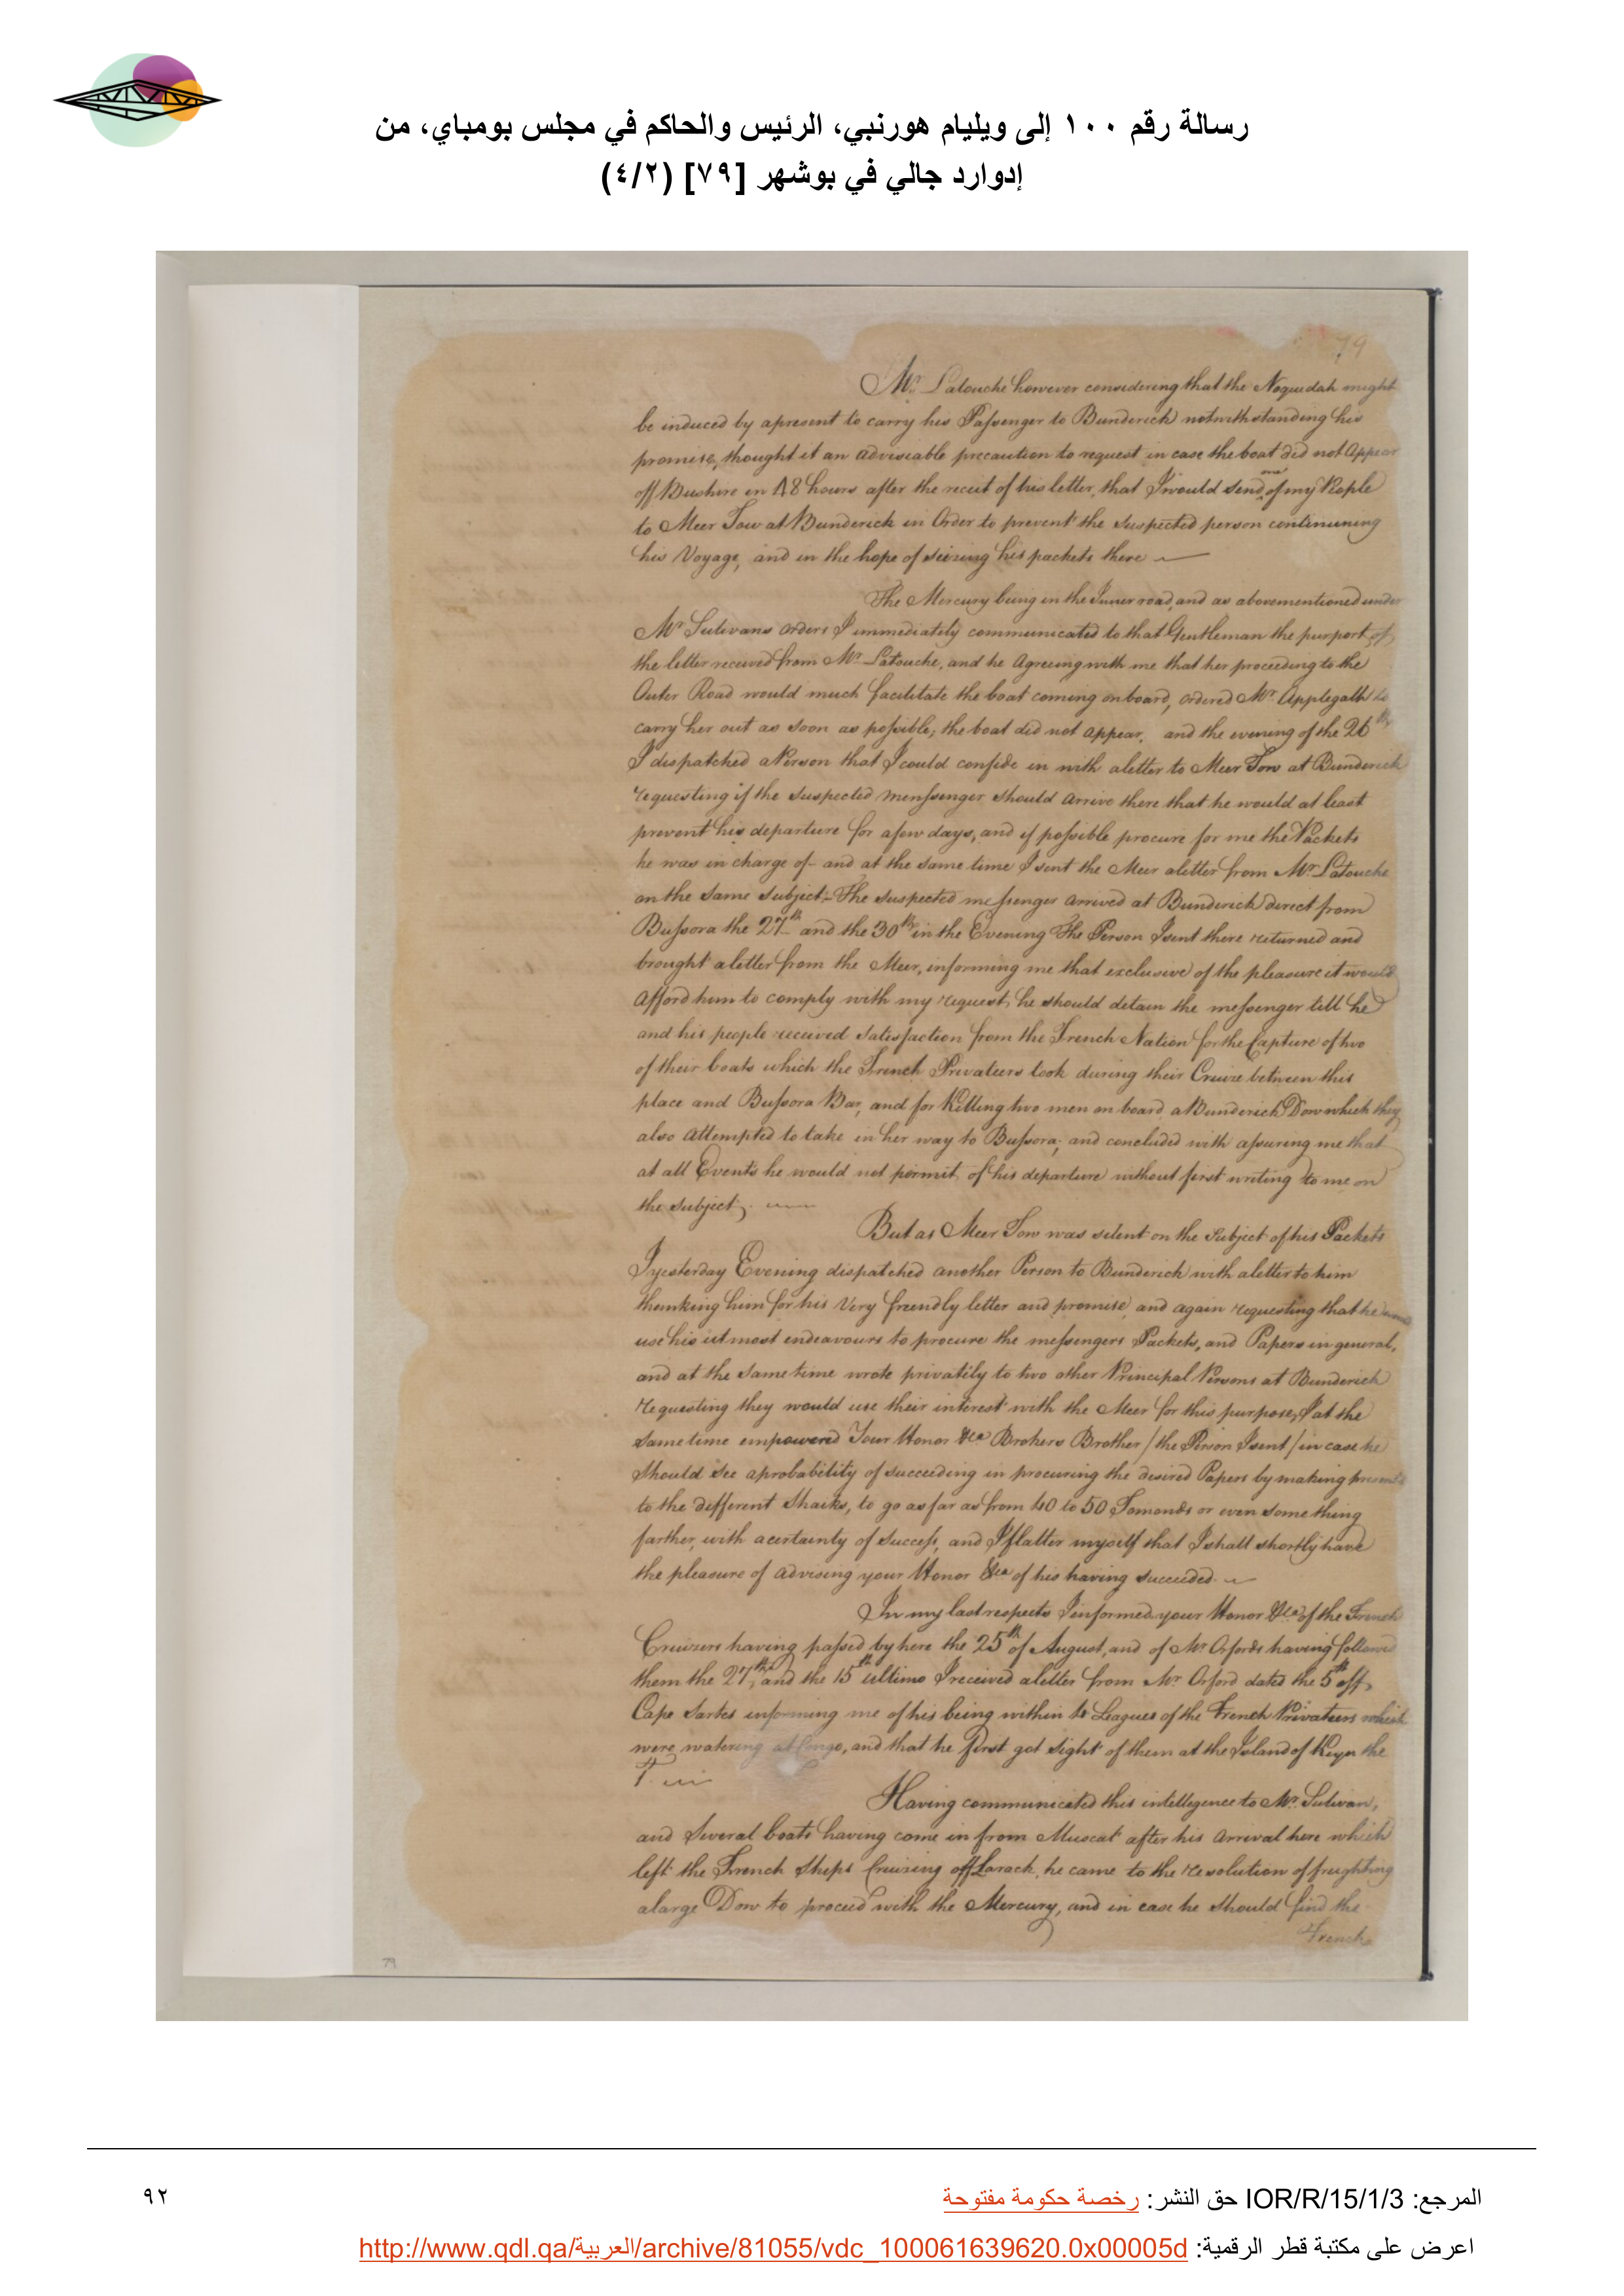 رسالة رقم ١٠٠ إلى ويليام هورنبي، الرئيس والحاكم في مجلس بومباي، من
إدوارد جالي في بوشهر [٧٩] (٤/٢)
79
Mr. Latouche however considering that the Noquedah might
be induced by a present to carry his Passenger to Bunderick notwithstanding his
promise, thought it an adviseable precaution to request in case the boat did not Appear
off Bushire in 48 hours after the receit of his letter, that I would send one of my People
to Meer Tow at Bunderick in Order to prevent the suspected person continuing
his Voyage, and in the hope of seizing his packets there
The Mercury being in the Inner road, and as abovementioned under
Mr. Sulivans orders I immediately communicated to that Gentleman the purport of
the letter received from Mr. Latouche, and he Agreeing with me that her proceeding to the
Outer Road would much facilitate the boat coming on board, ordered Mr. Applegath to
carry her out as soon as possible; the boat did not appear, and the evening of the 26th
I dispatched a Person that I could confide in with a letter to Meer Tow at Bunderick
requesting if the suspected messenger should arrive there that he would at least
prevent his departure for a few days, and if possible procure for me the Packets
he was in charge of - and at the same time I sent the Meer a letter from Mr. Latouche
on the same subject. The suspected messenger arrived at Bunderick direct from
Bussora the 27th and the 30th in the Evening The Person I sent there returned and
brought a letter from the Meer, informing me that exclusive of the pleasure it would
Afford him to comply with my request, he should detain the messenger till he
and his people received satisfaction from the French Nation for the Capture of two
of their boats which the French Privateers took during their Cruize between this
place and Bussora Bar, and for Killing two men on board a Bunderick Dow which they
also Attempted to take in her way to Bussora; and concluded with assuring me that
at all Events he would not permit of his departure without first writing to me on
the subject.
But as Meer Tow was silent on the Subject of his Packets
I yesterday Evening dispatched another Person to Bunderick with a letter to him
thanking him for his Very friendly letter and promise, and again requesting that he would
use his utmost endeavours to procure the messengers Packets, and Papers in general,
and at the same time wrote privately to two other Principal Persons at Bunderick
requesting they would use their interest with the Meer for this purpose, I at the
same time empowered Your Honor &ca Brokers Brother / the Person I sent / in case he
should see a probability of succeeding in procuring the desired Papers by making presents
to the different Shaiks, to go as far as from 40 to 50 Tomands or even something
farther, with a certainty of success, and I flatter myself that I shall shortly have
the pleasure of advising your Honor &ca of his having succeeded.
In my last respects I informed your Honor &ca of the French
Cruizers having passed by here the 25th of August, and of Mr. Orfords having followed
them the 27th, and the 15th ultimo I received a letter from Mr. Orford dated the 5th off
Cape Sartes informing me of his being within 4 Leagues of the French Privateers which
were watering at Congo, and that he first got sight of them at the Island of Keyn the
Having communicated this intellegence to Mr. Sulivan,
and several boats having come in from Muscat after his Arrival here which
left the French Ships Cruising off Larack, he came to the resolution of freighting
a large Dow to proceed with the Mercury, and in case he should find the
French
79
المرجع: IOR/R/15/1/3 حق النشر: رخصة حكومة مفتوحة
٩٢
اعرض على مكتبة قطر الرقمية: http://www.qdl.qa/العربية/archive/81055/vdc_100061639620.0x00005d